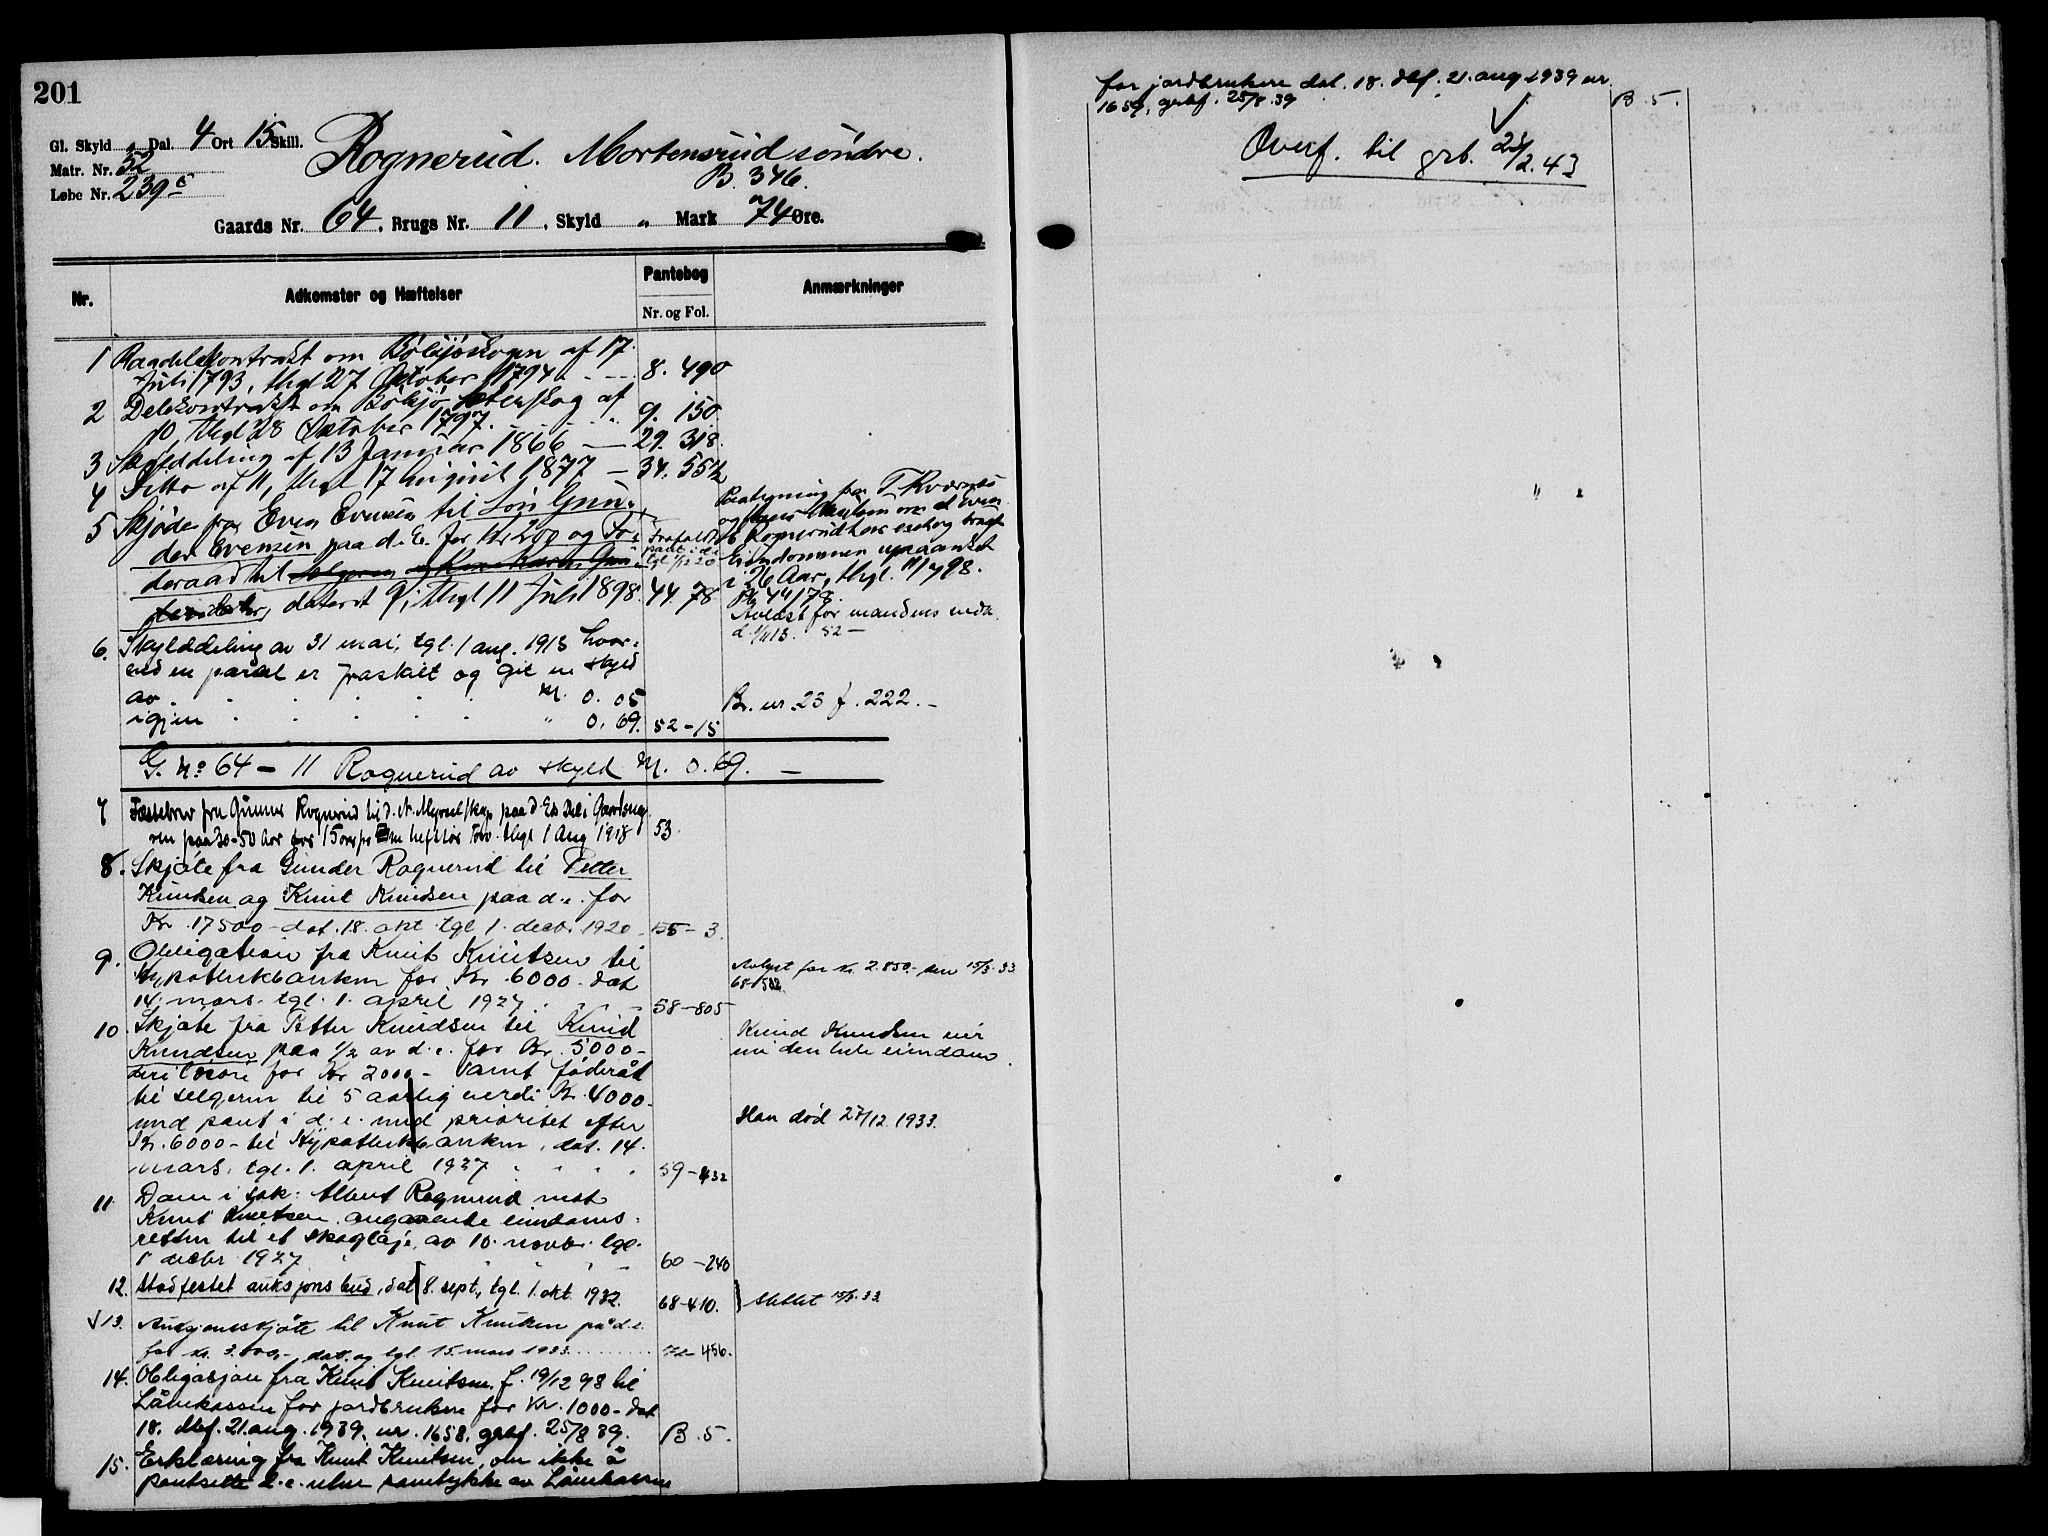 201
Gl. Skyld „ Dal. 4 Ort 15 Skill.
Matr. Nr. 52
Løbe Nr. 239
Rognerud. Mortensrud søndre.
B. 346.
Gaards Nr. 64, Brugs Nr. 11, Skyld „ Mark 74 Øre.
Nr.
Adkomster og Hæftelser
Pantebog
Nr. og Fol.
Anmærkninger
1 Raadelekontrakt om af 17
Juli 1793, thgl 27 Oktober 1794 8. 490
2 Delekontrakt om af
10, thgl 28 Oktober 1797. 9. 150
3 Skylddeling af 13 Januar 1866 — 29. 318.
4 Ditto af 11, thgl 17 August 1877 — 34. 552
5 Skjøde fra Even Evensen til Gun-
der Evensen paa d. E. for Kr 200 og Fo-
deraad til
dateret 9, thgl 11 Juli 1898. 44. 78
Frafaldt
tgl 1/12 20
Paategning fra T.
og om at Even
Rognerud
Eiendommen upaaanket
i 26 Aar, thgl. 11/7 98.
Pb 44/78.
Avløst for mandens vedk.
52 —
6. Skylddeling av 31 mai, tgl. 1 aug. 1913 hvor-
ved en parcel er fraskilt og git en skyld
av . . . . . . M. 0.05 Br. nr. 23 f. 222. –
igjen . . . . . „ 0.69. 52 – 15
G. No 64 – 11 Rognerud av skyld M. 0.69. —
7 Fæstebrev fra Gunner Rognerud til d. N. Myrselskap paa d. Es Del i
paa 30-50 Aar for 15 øre pr Torv. thgl 1 Aug 1918 53.
8. Skjøte fra Gunder Rognerud til Petter
Knutsen og Knut Knudsen paa d.e. for
Kr. 17500 – dat. 18. okt. tgl 1. decbr 1920 155 – 3.
9. Obligation fra Knut Knutsen til
Hypotekbanken for Kr. 6000. dat
14. mars. tgl. 1. april 1927 58 – 805
Avlyst for kr. 2.850.- den 15/3.33
68-502
10 Skjøte fra Petter Knudsen til Knud
Knudsen paa 1/2 av d.e. for Kr. 5000 –
herav løsøre for Kr 2000 – samt føderåd
til selgeren til 5 aarlig verdi Kr. 4000 –
med pant i d.e. med prioritet efter
Kr. 6000 – til Hypotekbanken, dat. 14.
mars, tgl. 1. april 1927 59 – 432
Knud Knudsen eier
nu den hele eiendom.
Han død 27/12 1933.
11. Dom i sak: Albert Rognerud mot
Knut Knutsen angaaende eiendoms-
retten til et skogteie, av 10. novbr. tgl.
1 decbr. 1927 60 – 240
12. Stadfestet auksjonsbud, dat 8. sept, tgl. 1. okt. 1932. 68 – 410. } slettet 15/3.33
√13. Auksjonsskjøte til Knut Knutsen på d.e.
for kr. 3.000,-, dat. og tgl. 15 mars 1933. 456.
14. Obligasjon fra Knut Knutsen f. 19/12 98 til
Lånekassen for jordbrukere for Kr. 1000 – dat
18. dbf. 21. aug. 1939, nr. 1658, grbf. 25/8 39. B. 5.
15. Erklæring fra Knut Knutsen, om ikke å
pantsette d.e. uten samtykke av Lånekassen
for jordbrukere dat. 18. dbf. 21. aug 1939 nr.
1659, grbf. 25/8.39 B. 5.
Overf. til grb. 25/2.43